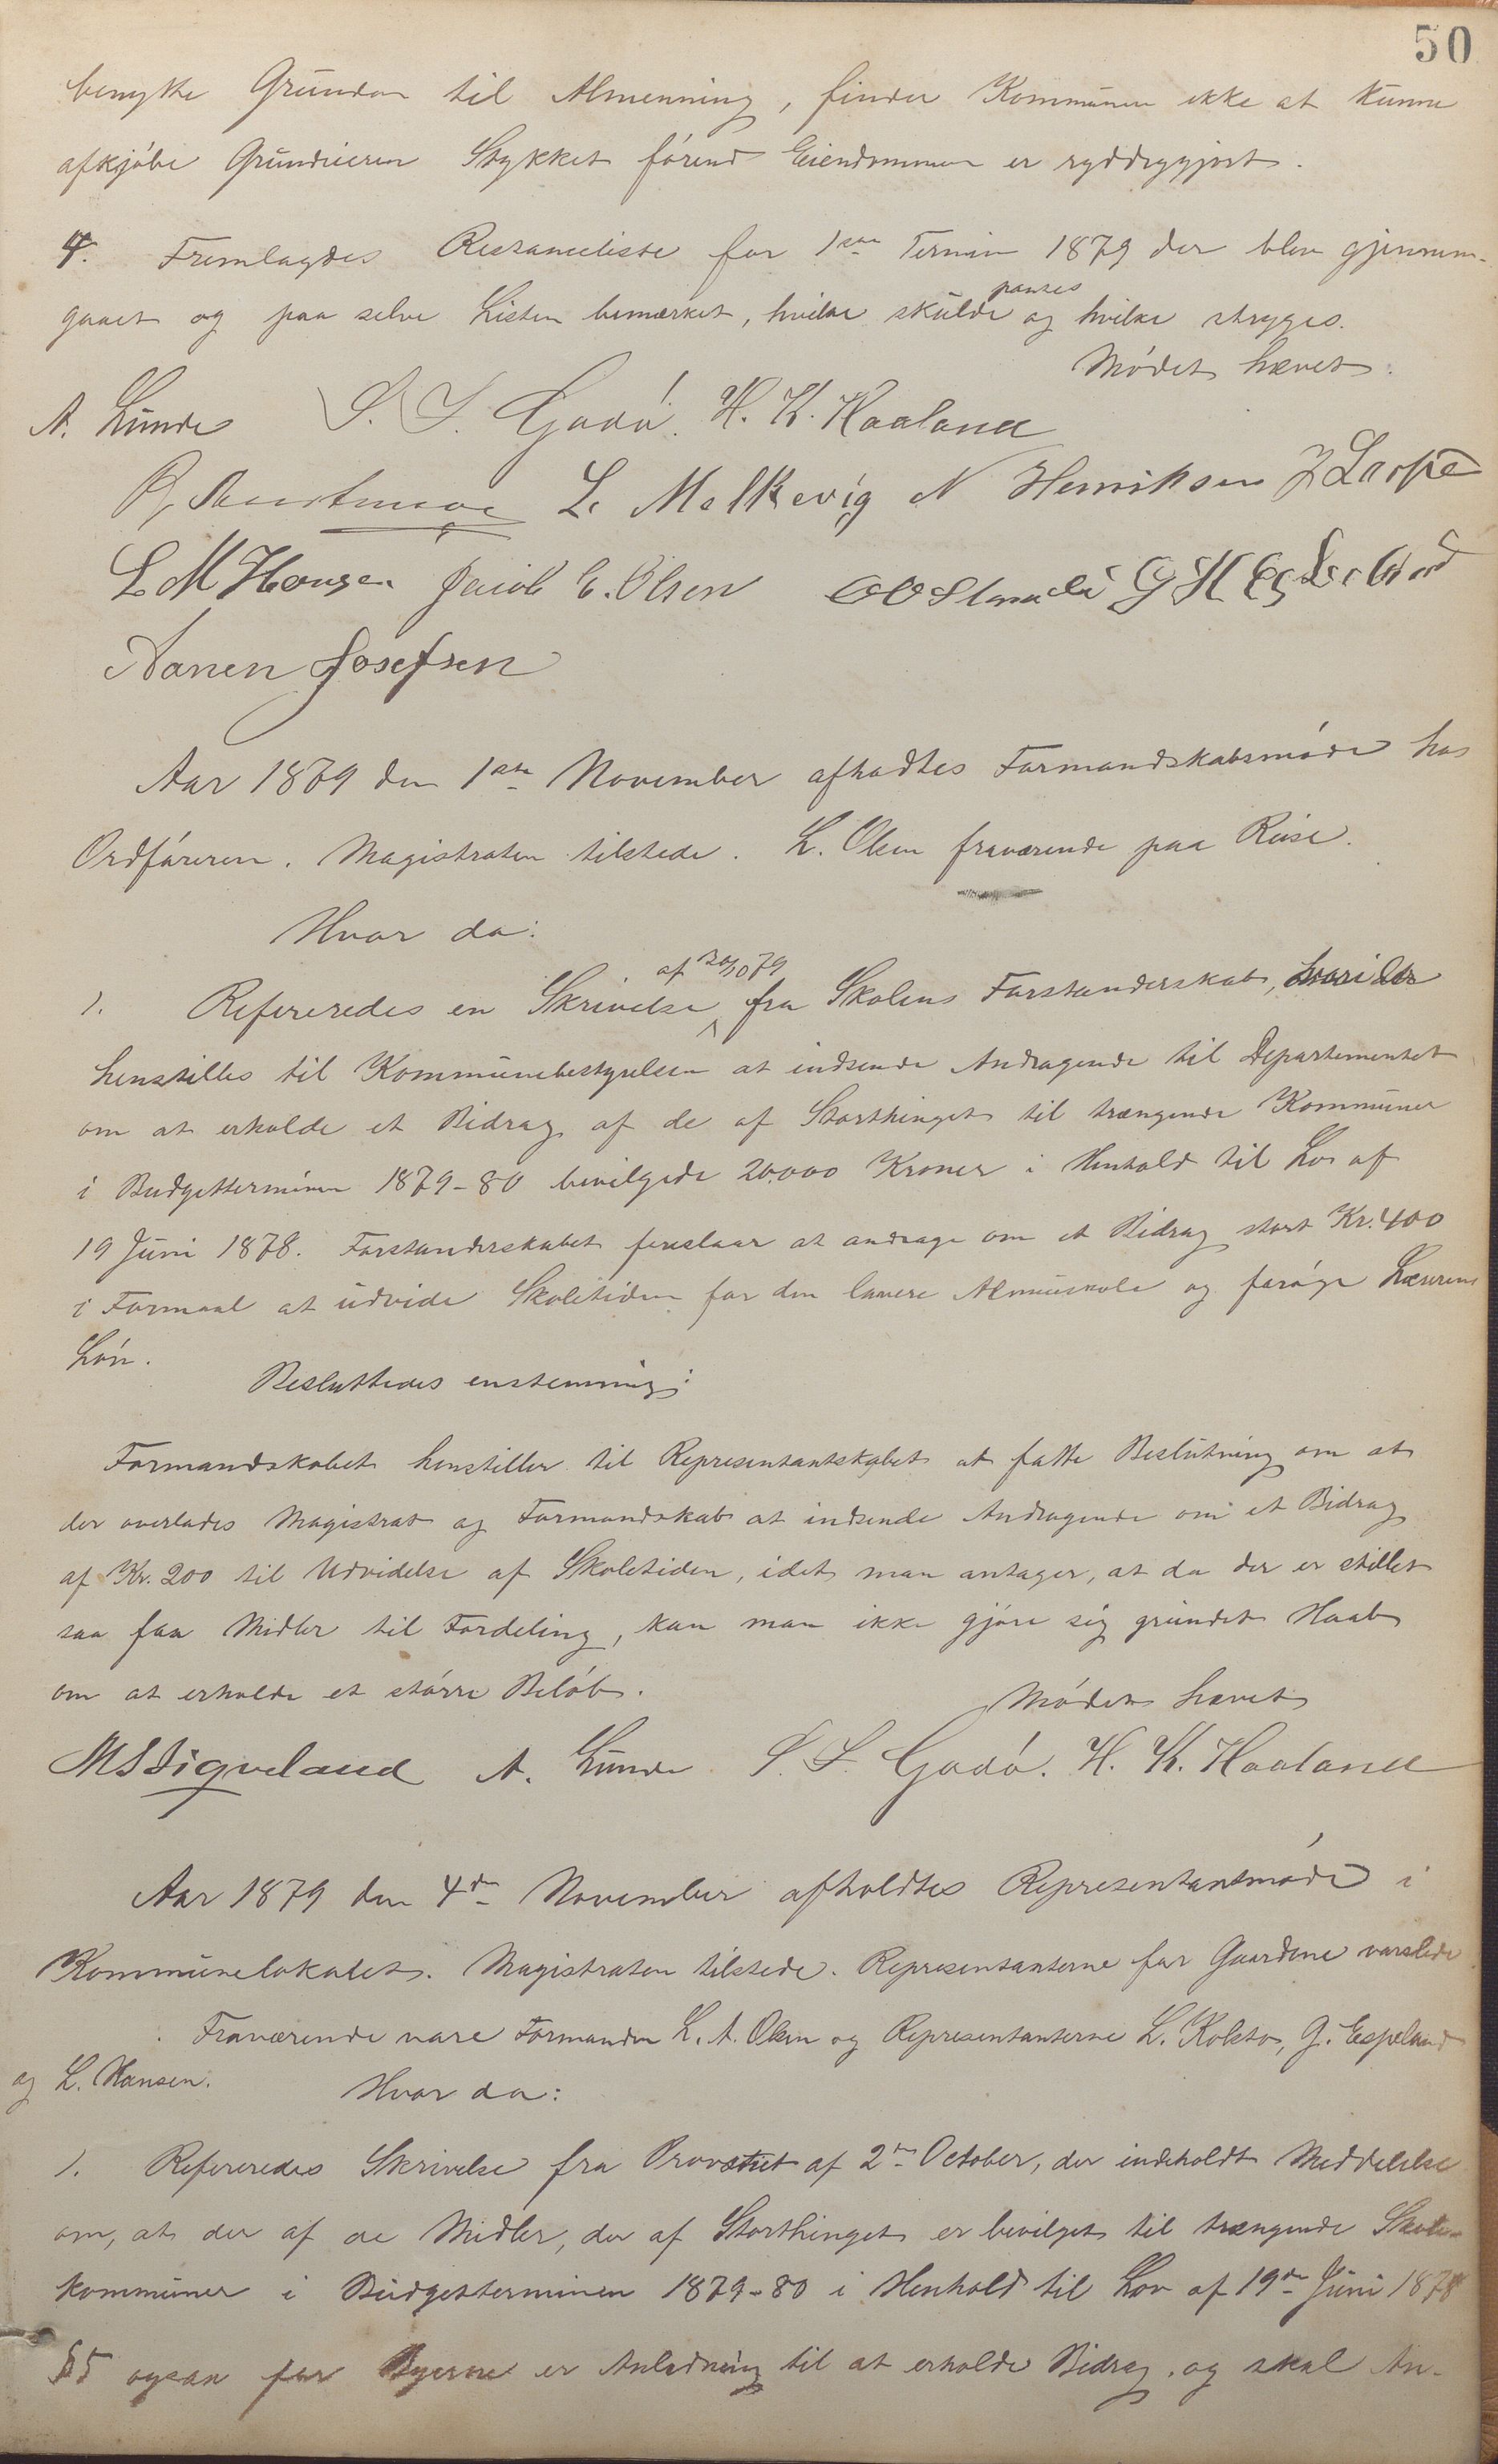 50
benytte Grunden til Almenning, finder Kommunen ikke at kunne
afkjøbe Grundeieren Stykket førend Eiendommen er ryddiggjort.
4. Fremlagdes Restanceliste for 1ste Termin 1879 der blev gjennem-
gaaet og paa selve Listen bemærket, hvilke skulde pantes og hvilke stryges.
Mødet hævet.
A. Lunde S. S. Gadø. H. K. Haaland
L. Melkevig N Henriksen
L M Hansen Jacob E. Olsen
Aanen Josefsen
Aar 1879 den 1ste November afholdtes Formandskabsmøde hos
Ordføreren. Magistraten tilstede. L. Olsen fraværende paa Reise.
Hvor da:
1. Refereredes en Skrivelse af 20/10 79 fra Skolens Forstanderskab, hvori der
henstilles til Kommunebestyrelsen at indsende Andragende til Departementet
om at erholde et Bidrag af de af Storthinget til trængende Kommuner
i Budgetterminen 1879-80 bevilgede 20.000 Kroner i Henhold til Lov af
19 Juni 1878. Forstanderskabet foreslaar at andrage om et Bidrag stort Kr. 400
i Formaal at udvide Skoletiden for den lavere Almueskole og forøge Lærerens
Løn.
Besluttedes enstemmig:
Formandskabet henstiller til Representantskabet at fatte Beslutning om at
der overlades Magistrat og Formandskab at indsende Andragende om et Bidrag
af Kr. 200 til Udvidelse af Skoletiden, idet man antager, at da der er stillet
saa faa Midler til Fordeling, kan man ikke gjøre sig grundet Haab
om at erholde et større Beløb.
Mødet hævet
M S Sigveland A. Lunde S. S. Gadø. H. K. Haaland
Aar 1879 den 4de November afholdtes Representantmøde i
Kommunelokalet. Magistraten tilstede. Representanterne for Gaardene varslede
. Fraværende vare Formanden L. A. Olsen og Representanterne L. Kolstø, G. Espeland
og L. Hansen.
Hvor da:
1. Refereredes Skrivelse fra Provstiet af 2den October, der indeholdt Meddelelse
om, at der af de Midler, der af Storthinget er bevilget til trængende Skole-
kommuner i Budgetterminen 1879-80 i Henhold til Lov af 19de Juni 1878
§5 ogsaa for Byerne er Anledning til at erholde Bidrag, og skal An-